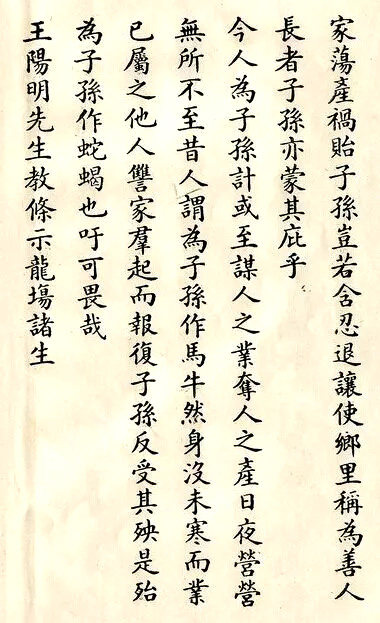 家蕩產禍貽子孫豈若含忍退讓使鄉里稱為善人
長者子孫亦蒙其庇乎
今人為子孫計或至謀人之業奪人之產日夜營營
無所不至昔人謂為子孫作馬牛然身沒未寒而業
已屬之他人讐家羣起而報復子孫反受其殃是殆
為子孫作蛇蝎也吁可畏哉
王陽明先生教條示龍塲諸生